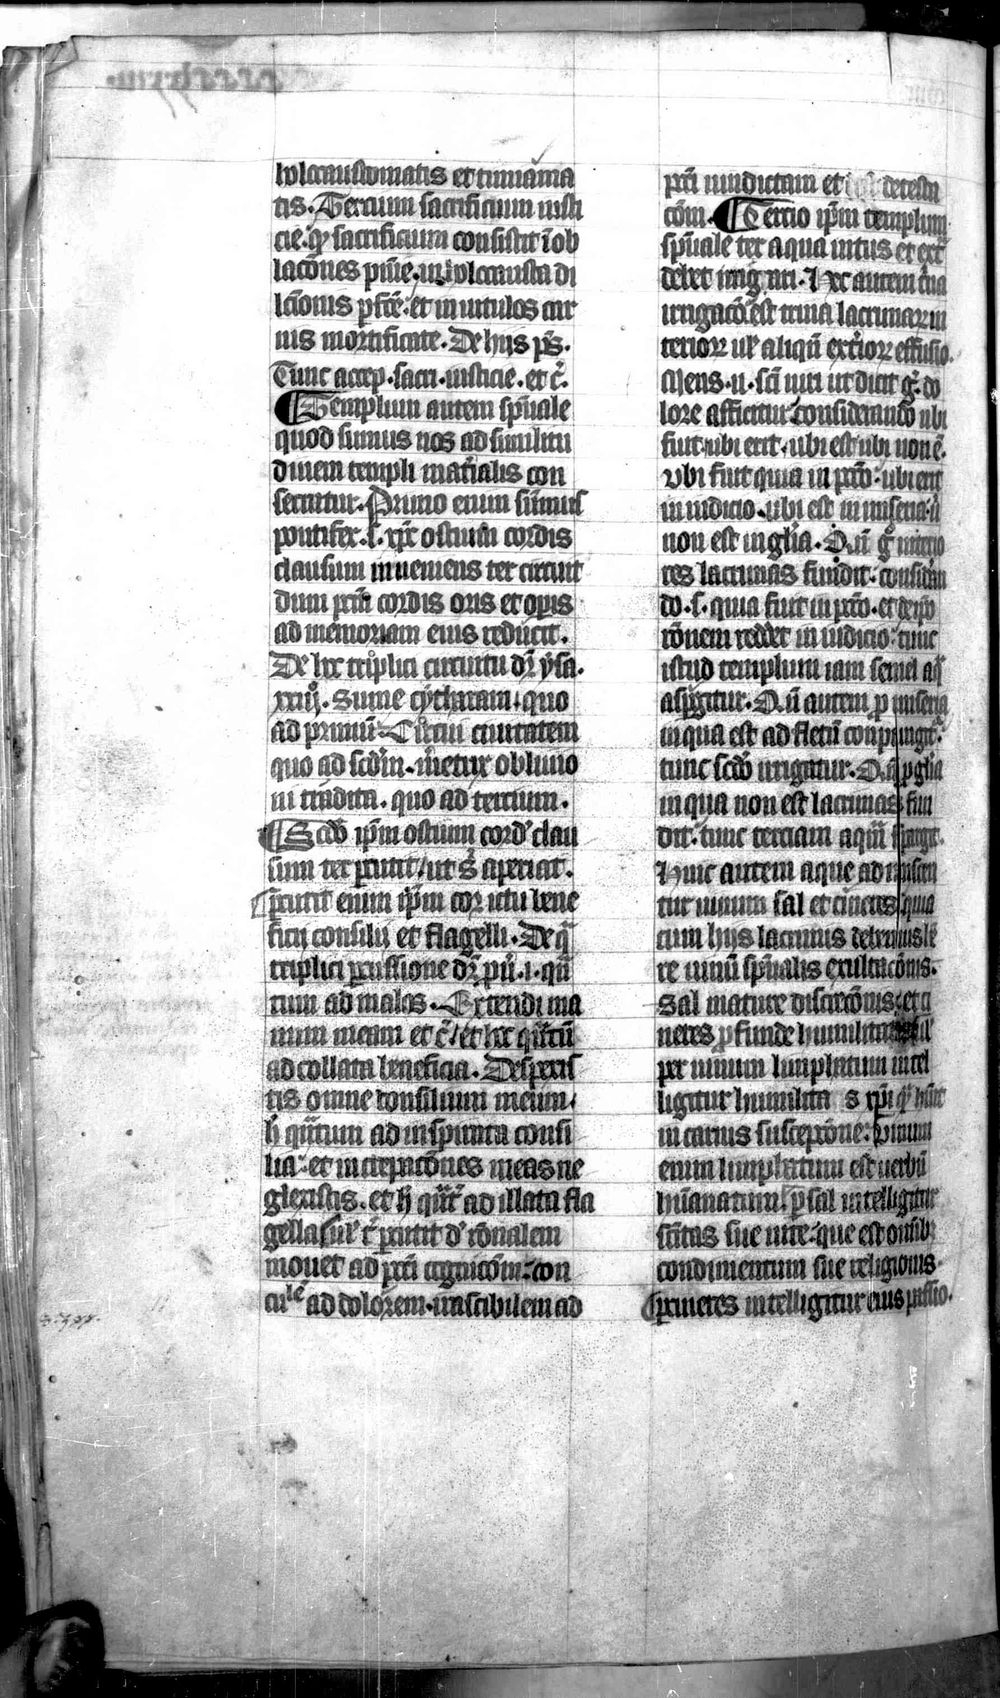 holocaustomatis et timiama
tis. Tercium sacrificium iusti
cie. qd sacrificium consistit i ob
lacōnes pm̄e. in holocausta di
lc̄ionis pfcē. et in vitulos car
nis mortificate. De hijs ps̄.
Tunc accep. sacri. iusticie. et c̄.
Templum autem spūale
quod sumus nos ad similitu
dinem templi mat̄ialis con
secratur. Primo enim sūmus
pontifex. s. xp̄c ostium cordis
clausum inueniens ter circuit
dum pctm̄ cordis oris et opis
ad memoriam eius reducit.
De hoc triplici circuitu dr̄ ysa.
xxiij. Sume cytharam. quo
ad primū. Circui ciuitatem
quo ad scdm̄. m̄etrix obliuio
ni tradita. quo ad tercium.
Scdo ip̄m ostium cord' clau
sum ter pcutit ut s' aperiat.
pcutit enim ip̄m cor ictu bene
ficij consilij et flagelli. De q
triplici pcussione dr̄ pū. i. qū
tum ad malos. Extendi ma
num meam et c̄. et hoc qn̄tū
ad collata beneficia. Despexis
tis omne consilium meum.
h qn̄tum ad inspirata consi
lia. et increpacōnes meas ne
glexistis. et h qn̄t ad illata fla
gella sil' t pcutit d' rōnalem
mouet ad pcti cognicōm. con
cu ad dolorem. irascibilem ad
pcti uindictam et detesta
cōm. Tercio ip̄m templum
spūale ter aqua intus et ext
debet irrigari. Hec autem t'na
irrigacō est trina lacrimar in
terior ul' aliqn̄ exterior effusio.
Mens. n. sc̄i uiri ut dicit g. do
lore afficitur considerando ubi
fuit. ubi erit. ubi est ubi non ē.
Vbi fuit quia in pctō. ubi erit
in iudicio. ubi est in miseria. ū
non est in glia. Qn̄ g interio
res lacrimas fundit. considran
do. s. quia fuit in pctō. et de ipō
rōnem reddet in iudicio. tunc
istud templum iam semel aq
aspgitur. Qn̄ autem p miseria
in qua est ad fletū conpungit.
tunc scdo irrigatur. Qn̄ p glia
in qua non est lacrimas fun
dit. tunc terciam aquā spargit.
Huic autem aque admiscen
tur uinum sal et cineres quia
cum hijs lacrimis debemus he
re uinū spūalis exultacōnis.
Sal mature discrecōnis. et ci
neres pfunde humilitatis
per uinum limphatum intel
ligitur humilita s xpi q hūit
in carnis suscepcōne. Vinum
enim limphatum est uerbū
huianatum. p sal intelligitur
sc̄itas sue uite. que est omib
condimentum sue religionis.
p cineres intelligitur eius passio.